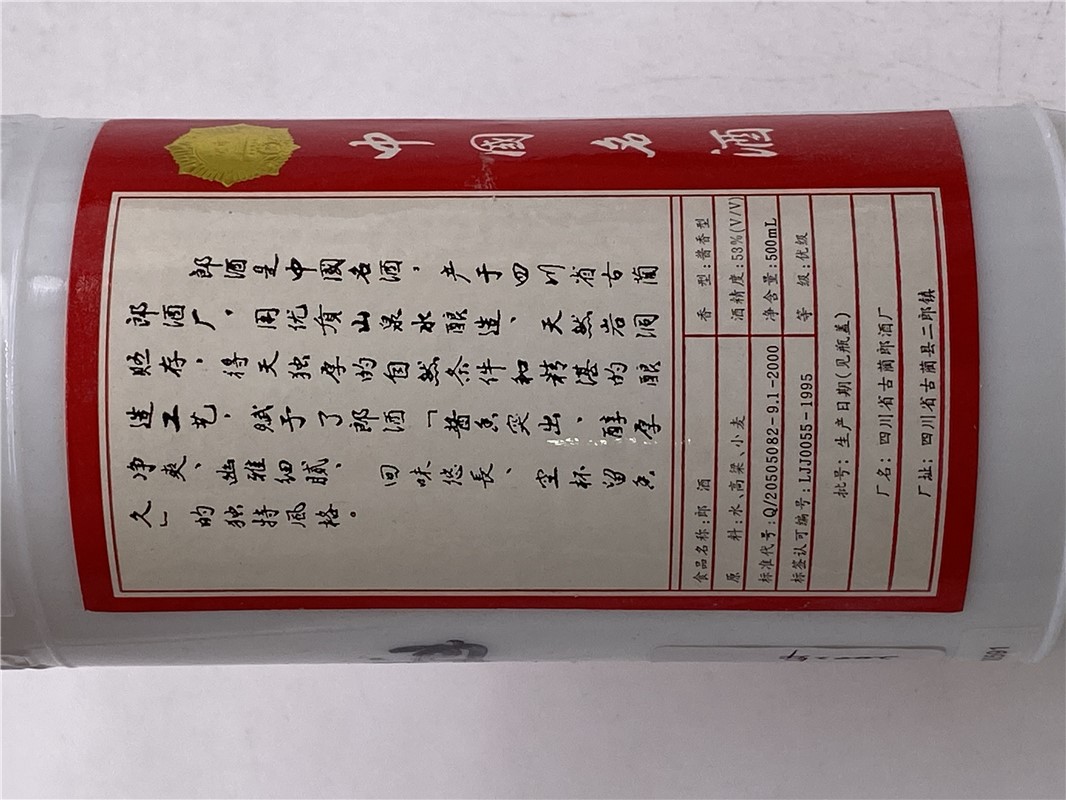 中國名酒
郎酒是中國名酒，产于四川省古蔺
郎酒厂，用优质山泉水酿造、天然岩洞
贮存，得天独厚的自然条件和精湛的酿
造工艺，赋予了郎酒「酱香突出、醇厚
净爽、幽雅细腻、回味悠長、空杯留香
久」的独特風格。
食品名称:郎酒 香型:酱香型
原料:水、高粱、小麦 酒精度:53%(V/V)
标准代号:Q/20505082-9.1-2000 净含量:500mL
标签认可编号:LJJ0055-1995 等级:优级
批号:生产日期(见瓶盖)
厂名:四川省古蔺郎酒厂
厂址:四川省古蔺县二郎镇